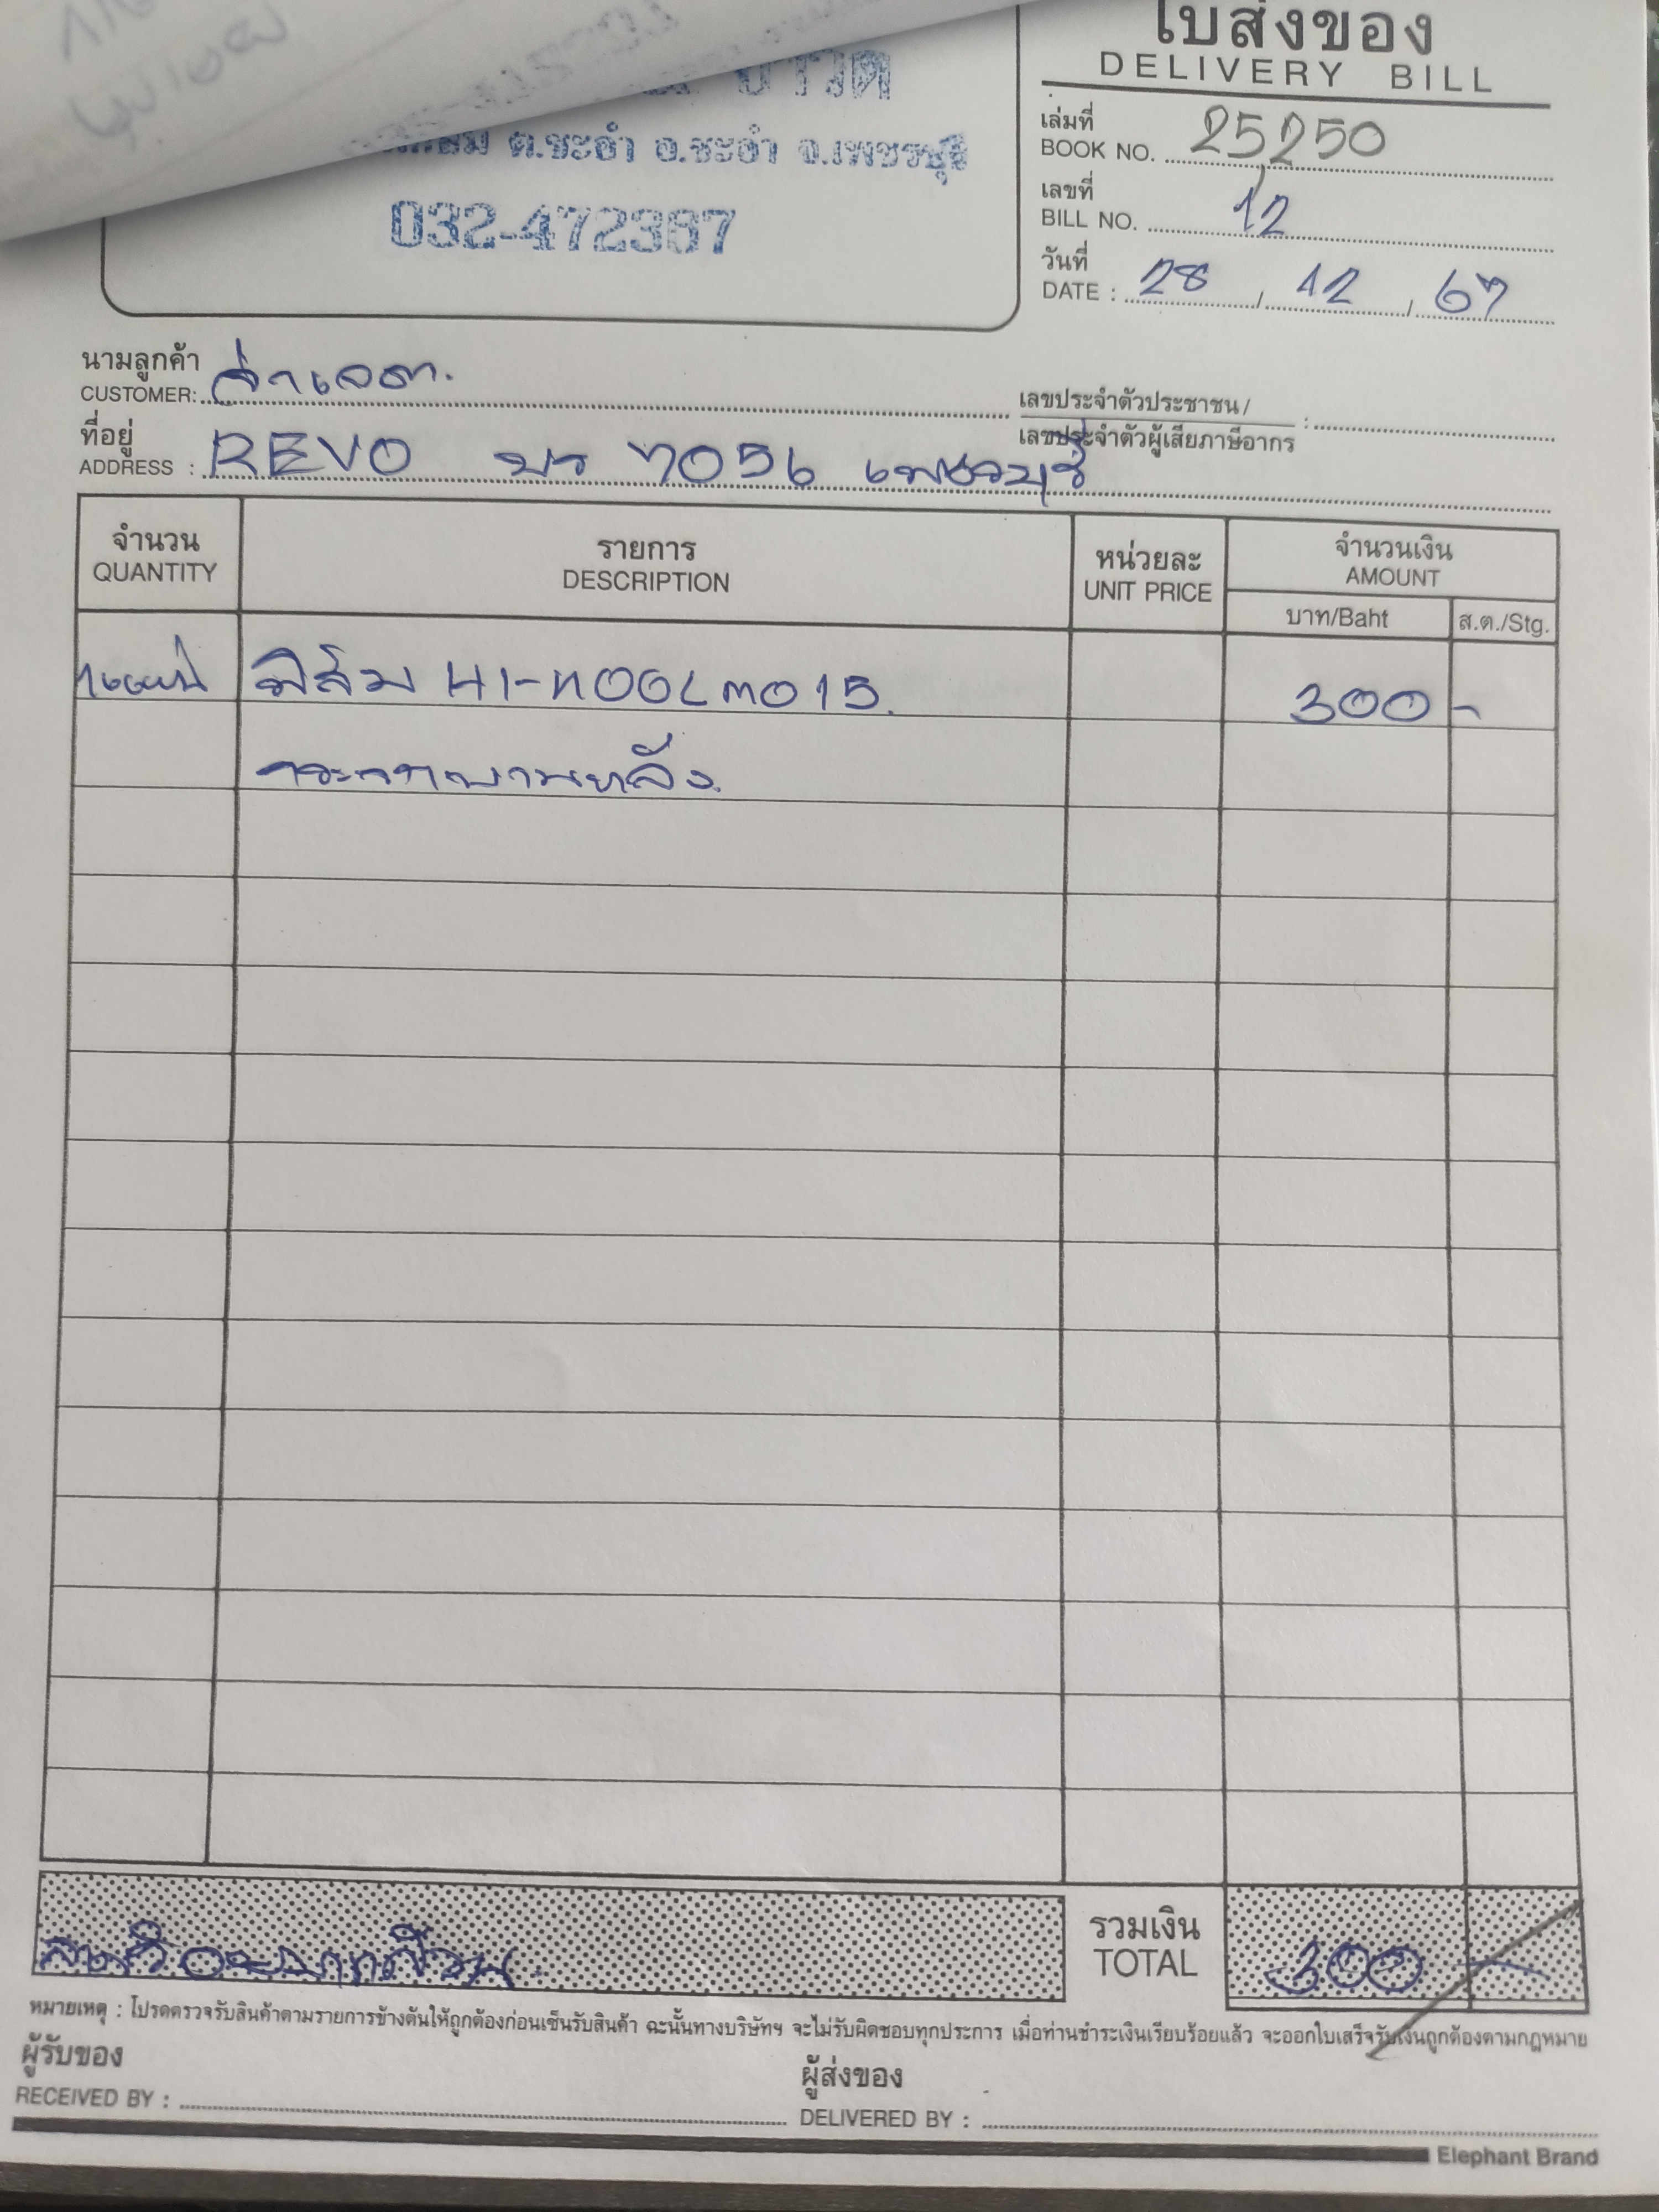 ใบส่งของ
DELIVERY BILL
ต.ชะอำ อ.ชะอำ จ.เพชรบุรี
032-472387
เล่มที่
BOOK NO. 25,250
เลขที่
BILL NO. 12
วันที่
DATE : 28 / 12 / 67
นามลูกค้า
CUSTOMER: จ่าเจตา.
เลขประจำตัวประชาชน/
เลขประจำตัวผู้เสียภาษีอากร :
ที่อยู่
ADDRESS : REVO บร 7056 เพชรบุรี
จำนวน
QUANTITY
รายการ
DESCRIPTION
หน่วยละ
UNIT PRICE
จำนวนเงิน
AMOUNT
บาท/Baht
ส.ต./Stg.
ฟิล์ม HI-KOOL 300 -
กระจกบานหลัง.
รวมเงิน
TOTAL 300 -
หมายเหตุ : โปรดตรวจรับสินค้าตามรายการข้างต้นให้ถูกต้องก่อนเซ็นรับสินค้า ฉะนั้นทางบริษัทฯ จะไม่รับผิดชอบทุกประการ เมื่อท่านชำระเงินเรียบร้อยแล้ว จะออกใบเสร็จรับเงินถูกต้องตามกฎหมาย
ผู้รับของ
RECEIVED BY :
ผู้ส่งของ
DELIVERED BY :
Elephant Brand